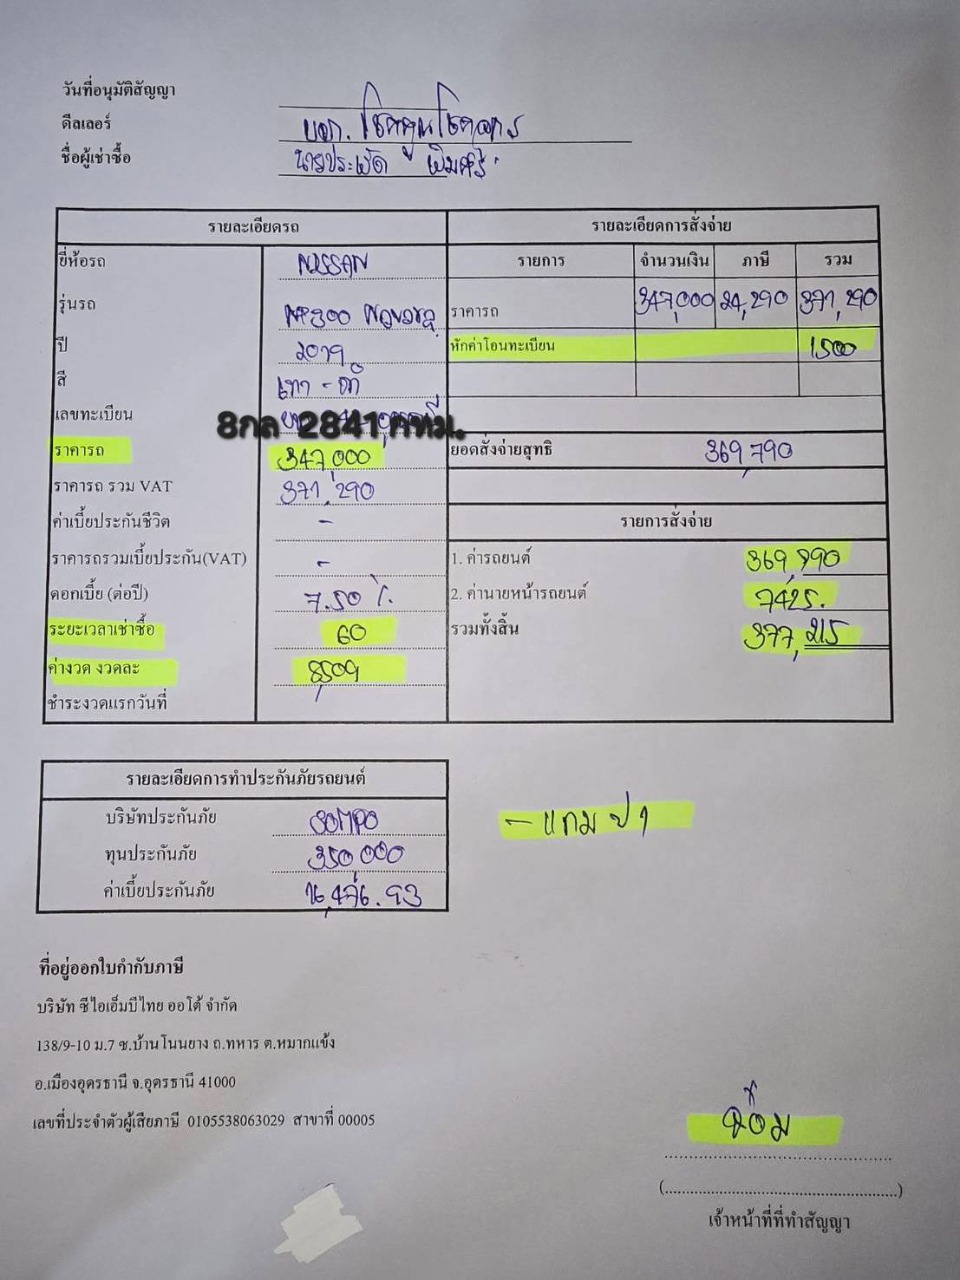 วันที่อนุมัติสัญญา
ดีลเลอร์ บจก. โชคคูนโชคถาวร
ชื่อผู้เช่าซื้อ นายประหยัด
รายละเอียดรถ
รายละเอียดการสั่งจ่าย
ยี่ห้อรถ NISSAN
รายการ จำนวนเงิน ภาษี รวม
รุ่นรถ NP300 Navara
ราคารถ 347,000 24,290 371,290
ปี 2019
หักค่าโอนทะเบียน 1500
สี เทา - ดำ
เลขทะเบียน 8กล 2841 กทม.
ราคารถ 347,000
ยอดสั่งจ่ายสุทธิ 369,790
ราคารถ รวม VAT 371,290
ค่าเบี้ยประกันชีวิต -
รายการสั่งจ่าย
ราคารถรวมเบี้ยประกัน(VAT) -
1. ค่ารถยนต์ 369,790
ดอกเบี้ย (ต่อปี) 7.50 %
2. ค่านายหน้ารถยนต์ 7425.
ระยะเวลาเช่าซื้อ 60
รวมทั้งสิ้น 377,215
ค่างวด งวดละ 8,509
ชำระงวดแรกวันที่
รายละเอียดการทำประกันภัยรถยนต์
บริษัทประกันภัย SOMPO
- แถม ป1
ทุนประกันภัย 350,000
ค่าเบี้ยประกันภัย 16,476.93
ที่อยู่ออกใบกำกับภาษี
บริษัท ซีไอเอ็มบีไทย ออโต้ จำกัด
138/9-10 ม.7 ซ.บ้านโนนยาง ถ.ทหาร ต.หมากแข้ง
อ.เมืองอุดรธานี จ.อุดรธานี 41000
เลขที่ประจำตัวผู้เสียภาษี 0105538063029 สาขาที่ 00005
(.....................................................)
เจ้าหน้าที่ที่ทำสัญญา